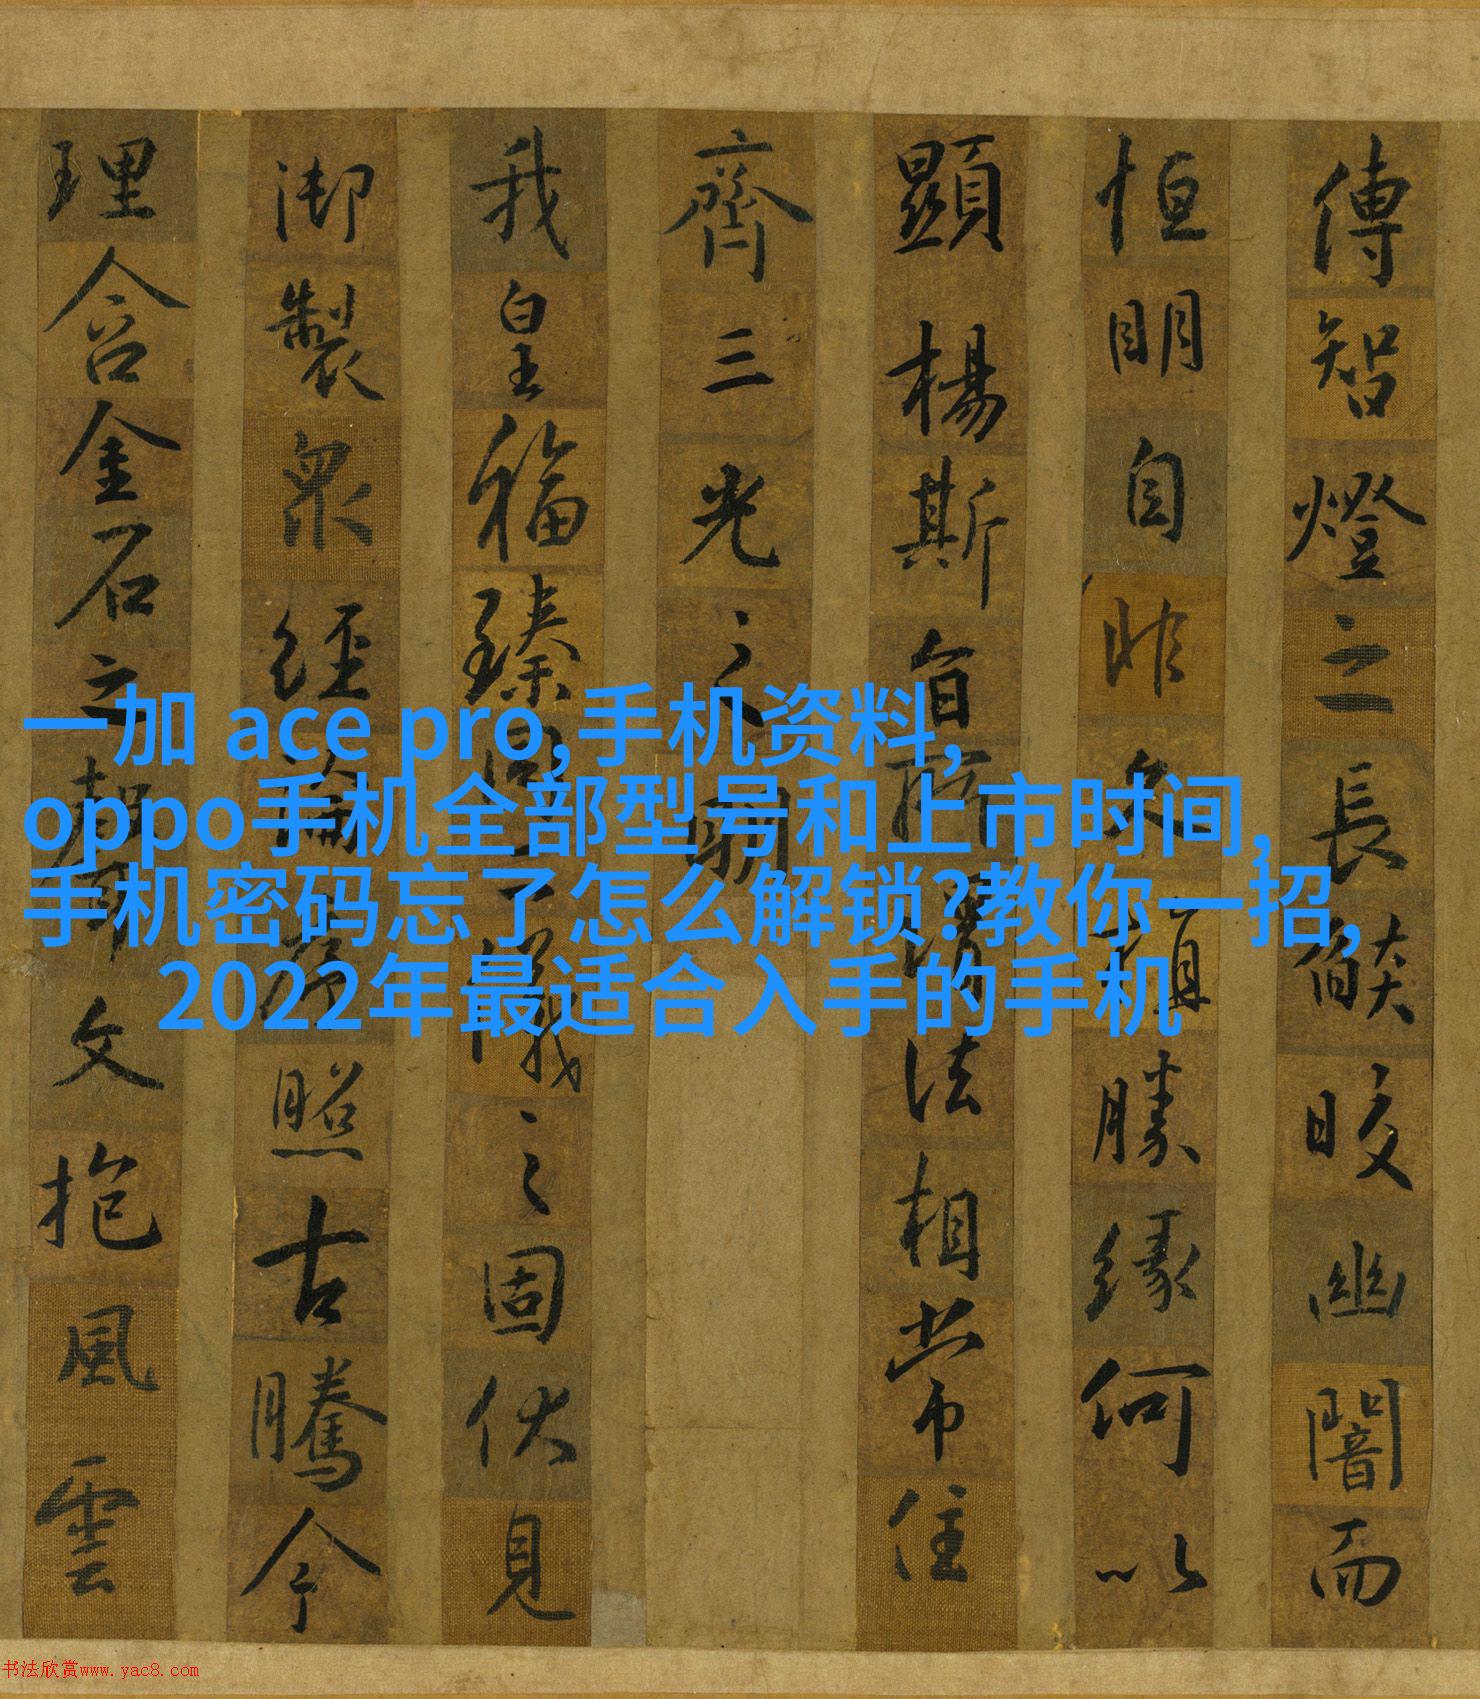 傳智燈之長燄晈幽闇而
恒明自非久植勝緣何以
顯楊斯旨所謂法相常住
齊三光之明
我皇福臻同二儀之固伏見
御製衆經論序照古騰今
理含金石之聲文抱風雲
一加 ace pro,手机资料,
oppo手机全部型号和上市时间,
手机密码忘了怎么解锁?教你一招,
2022年最适合入手的手机
书法欣赏www.yac8.com